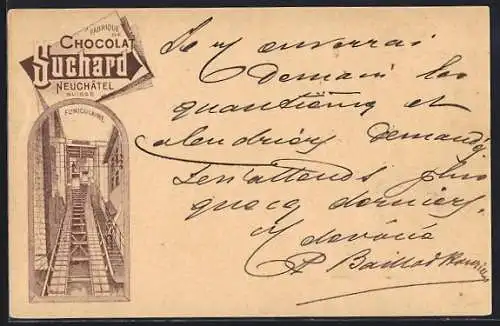 FABRIQUE
DE
CHOCOLAT
Suchard
NEUCHÂTEL
SUISSE
FUNICULAIRE
Je V enverrai
Demain les
quantièmes et
calendriers demandés
J'en attends plus
que ces derniers.
V dévoué
A Baillod